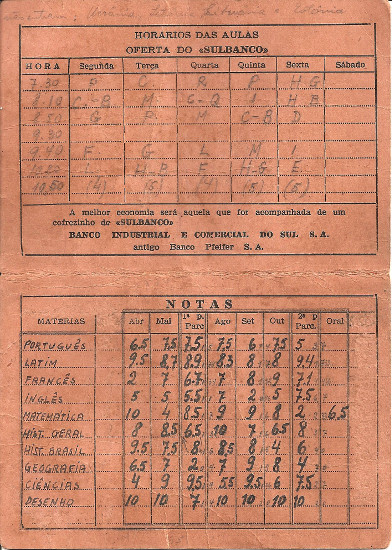 HORARIOS DAS AULAS
OFERTA DO «SULBANCO»
HORA Segunda Terça Quarta Quinta Sexta Sábado
7,30 P R P H G
8,10 C-B M C-Q I H-B
8,50 G P M C-B D
9.30
F G L M I
H-B F H-G E
10,50 (4) (5) (4) (5) (5)
A melhor economia será aquela que for acompanhada de um
cofrezinho do «SULBANCO»
BANCO INDUSTRIAL E COMERCIAL DO SUL S. A.
antigo Banco Pfeifer S. A.
NOTAS
MATERIAS Abr Mai 1ª p. Parc Ago Set Out 2ª p Parc. Oral
PORTUGUÊS 6.5 7.5 7.5 7.5 6 7.5 5
LATIM 9.5 8,7 8.9 8.3 8 8 9.4
FRANCÊS 2 7 6.7 7 8 9 7.1
INGLÊS 5 5 5.5 7 2 5 7.5
MATEMATICA 10 4 8.5 9 9 8 2 6,5
HIST. GERAL 8 8.5 6.5 10 7 6.5 8
HIST. BRASIL 9.5 7.5 8 8.5 8 4 6
GEOGRAFIA 6.5 7 2 7 9 8 4
CIÊNCIAS 4 9 9.5 5.5 9.5 6 7.5
DESENHO 10 10 7 10 10 10 10